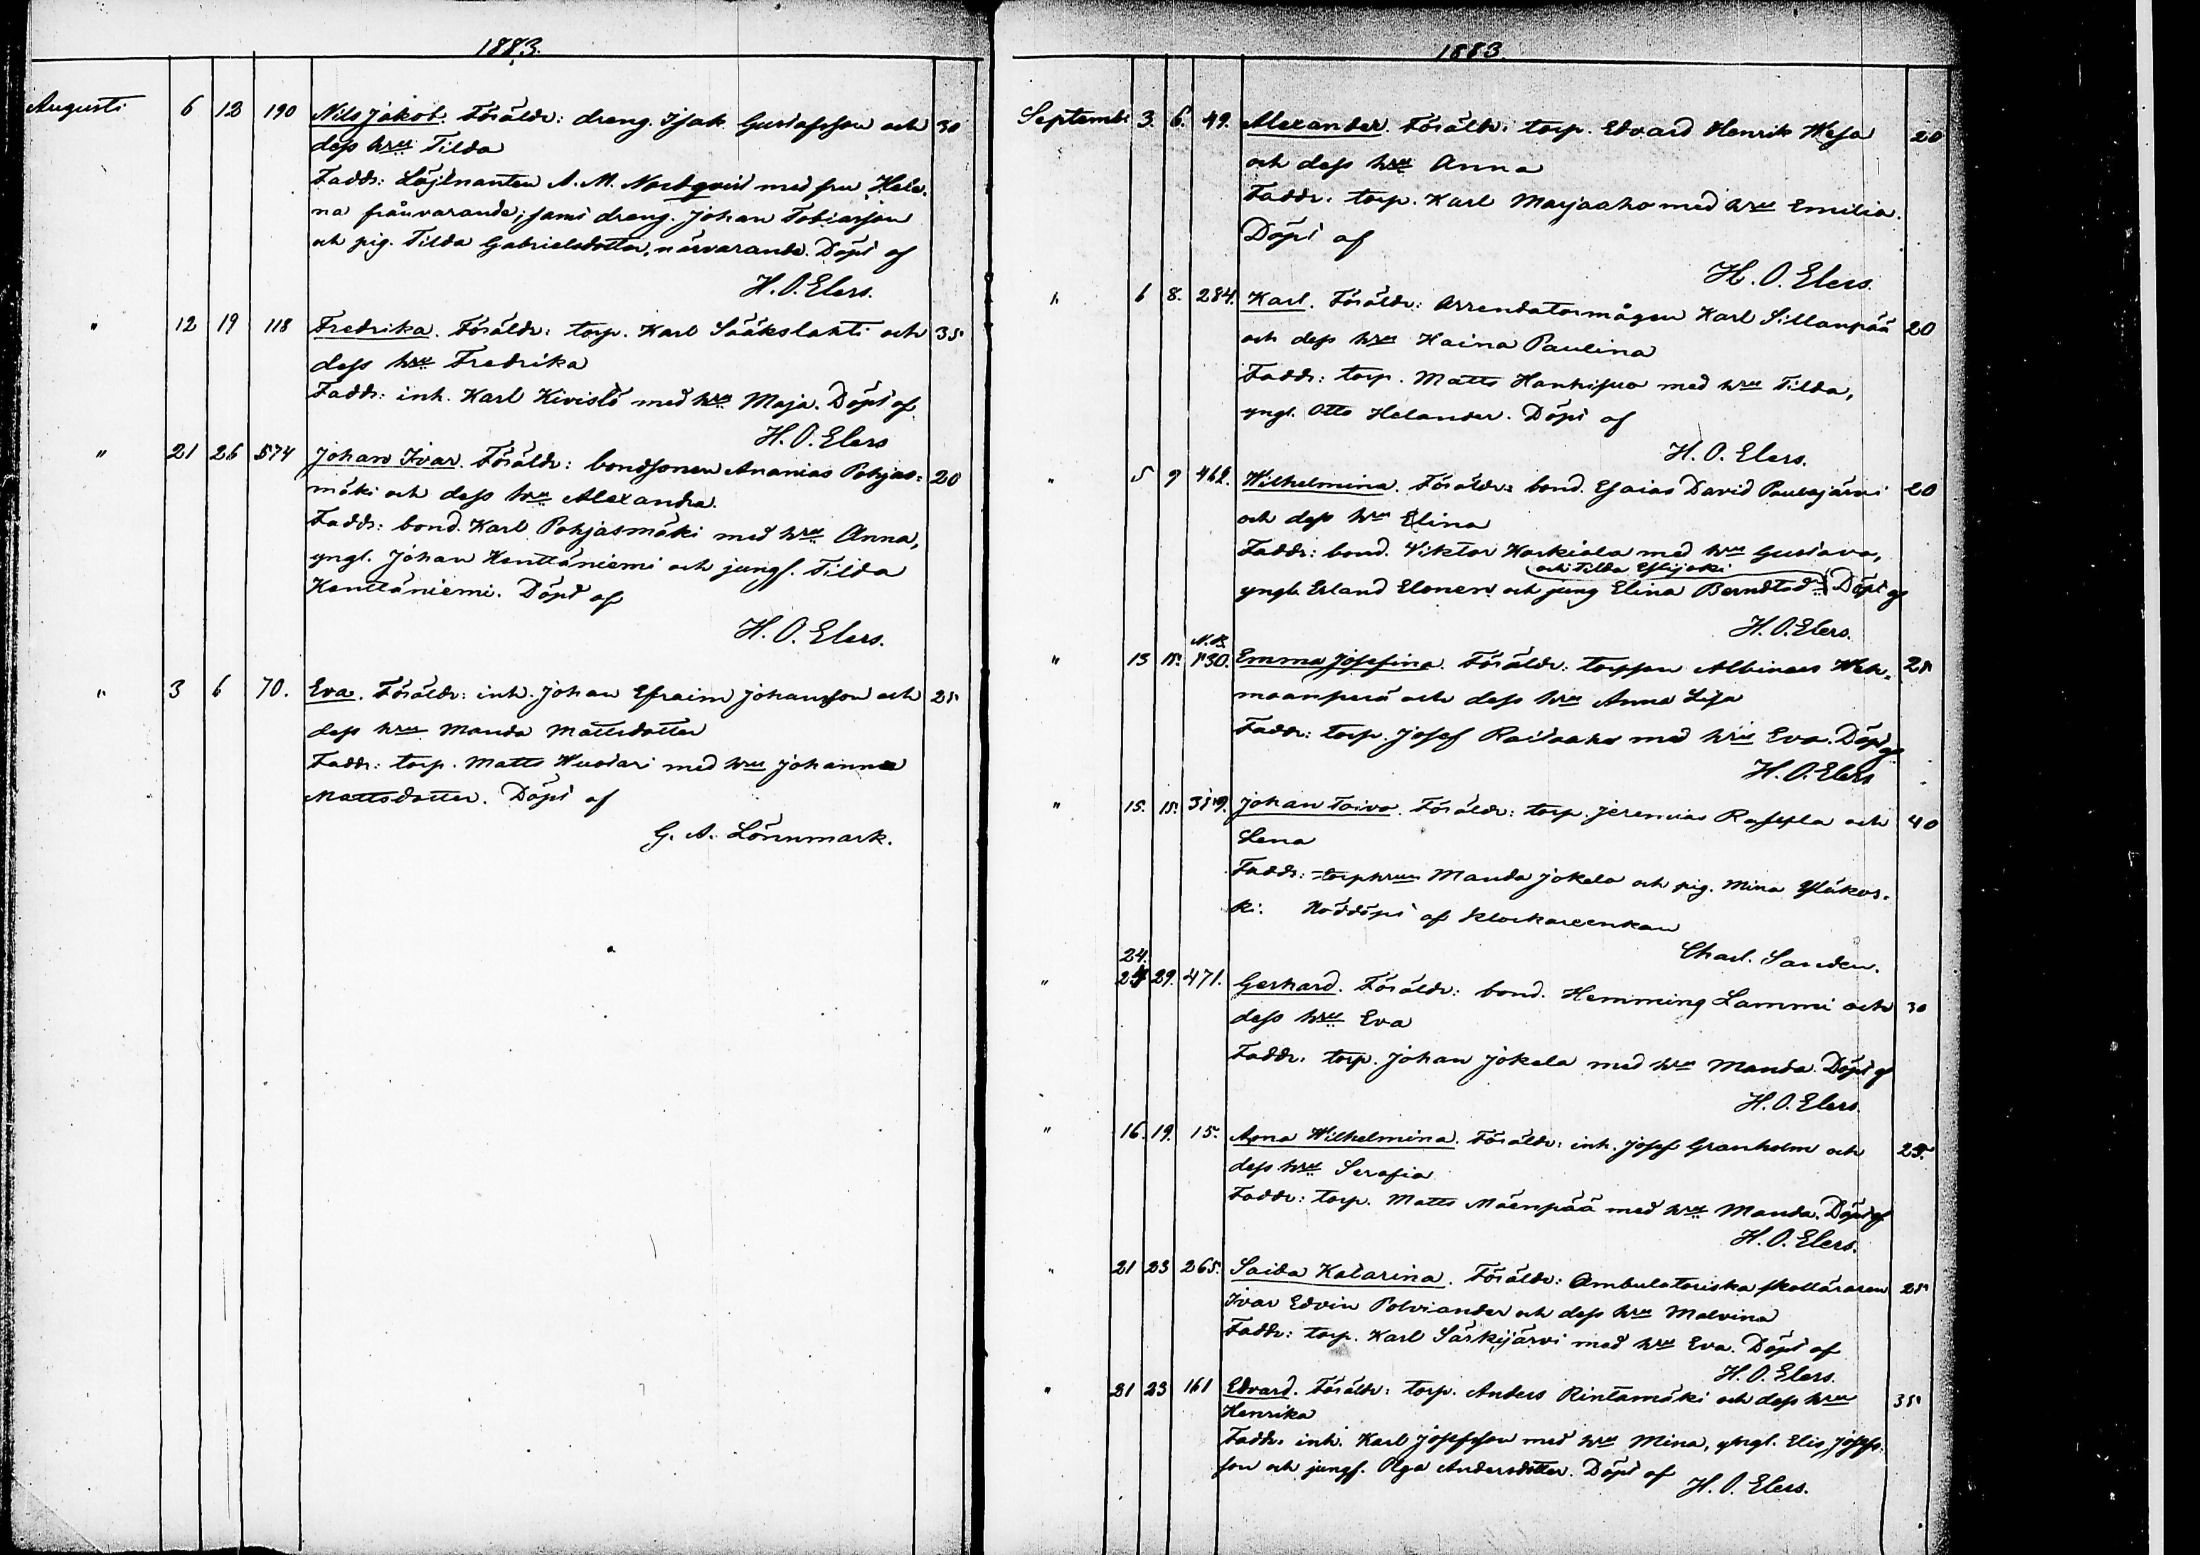 1883.
Augusti 6 12 190 Nils Jakob. Föräldr: dreng. Isak Gustafsson och 30
dess hru Tilda
Faddr: Löjtnanten A. M. Nordqvist med fru Hele-
na frånvarande, samt dreng. Johan Tobiasson
och pig. Tilda Gabrielsdotter, närvarande. Döpt af
H. O. Elers.
" 12 19 118 Fredrika. Föräldr: torp. Karl Sääkslahti och 35
dess hru Fredrika
Faddr: inh. Karl Kivistö med hru Maja. Döpt af
H. O. Elers
" 21 26 574 Johan Ivar. Föräldr: bondsonen Ananias Pohjas- 20
mäki och dess hru Alexandra.
Faddr: bond. Karl Pohjasmäki med hru Anna,
yngl. Johan Kenttäniemi och jungf. Tilda
Kenttäniemi. Döpt af
H. O. Elers.
" 3 6 70. Eva. Föräldr: inh. Johan Efraim Johansson och 25
dess hru Manda Mattsdotter
Faddr: torp. Matts Huodari med hru Johanna
Mattsdotter. Döpt af
G. A. Lönnmark.
1883.
Septemb: 3. 6. 49. Alexander. Föräldr: torp. Edvard Henrik Wesa 20
och dess hru Anna
Faddr: torp. Karl Marjaaho med hru Emilia.
Döpt af
H. O. Elers.
" 6 8. 284. Karl. Föräldr: Arrendatormågen Karl Sillanpää 20
och dess hru Haina Paulina
Faddr: torp. Matts Hanhisuo med hru Tilda,
yngl. Otto Helander. Döpt af
H. O. Elers.
" 5 9 462. Wilhelmina. Föräldr: bond. Esaias David Paulajärvi 20
och dess hru Elina
Faddr: bond. Viktor Karkiala med hru Gustava,
och Tilda Ylijoki
yngl. Erland Elonen och jung Elina Berndtsdr Döpt af
H. O. Elers.
N.B.
" 13 15. 530. Emma Josefina. Föräldr: torpson Albinus Weh- 25
maanperä och dess hru Anna Lisa
Faddr: torp. Josef Raitaaho med hru Eva. Döpt af
H. O. Elers
" 15. 15. Johan Toivo. Föräldr: torp. Jeremias och 40
Lena
Faddr: torphrun Manda Jokela och pig. Mina Yläkos-
ki. Nöddöpt af klockareenkan
Charl. Sanden.
24.
" 29. 471. Gerhard. Föräldr: bond. Hemming Lammi och 30
dess hru Eva
Faddr: torp. Johan Jokela med hru Manda. Döpt af
H. O. Elers.
" 16. 19. 15. Anna Wilhelmina. Föräldr: inh. Josef Granholm och 25.
dess hru Serafia
Faddr: torp. Matts Mäenpää med hru Manda. Döpt af
H. O. Elers.
" 21 23 265. Saida Katarina. Föräldr: Ambulatoriska skolläraren 25
Ivar Edvin Polviander och dess hru Malvina
Faddr: torp. Karl Särkijärvi med hru Eva. Döpt af
H. O. Elers.
" 21 23 161 Edvard. Föräldr: torp. Anders Rintamäki och dess hru 35
Henrika
Faddr: inh. Karl Josefsson med hru Mina, yngl. Elis Josefs-
son och jungf. Olga Andersdotter. Döpt af
H. O. Elers.